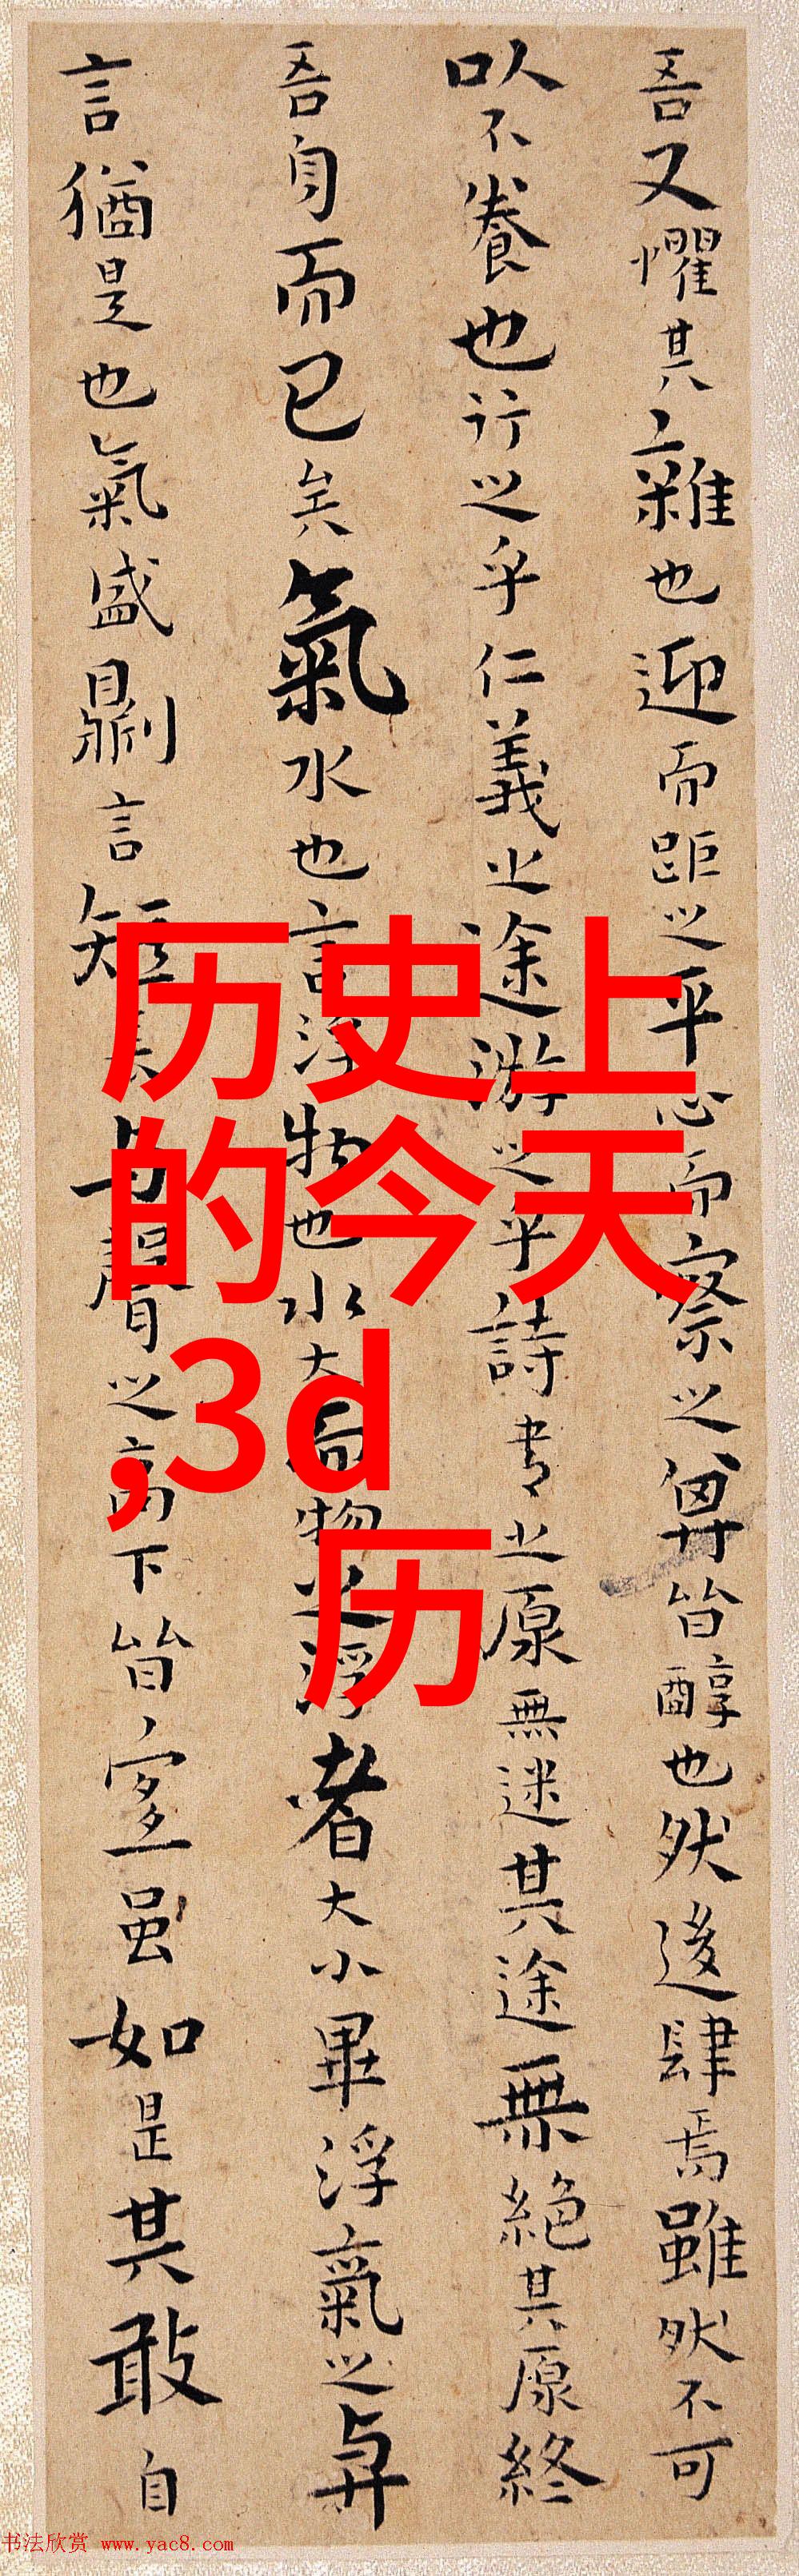 吾又懼其雜也迎而距之平心而察之其皆醇也然後肆焉雖然不可
以不養也行之乎仁義之途游之乎詩書之原無迷其途無絕其原終
吾身而已矣氣水也言浮物也水大而物之浮者大小畢浮氣之與
言猶是也氣盛則言短長与聲之高下皆宜虽如是其敢自
历史上
的今天
,3d
历
书法欣赏 www.yac8.com